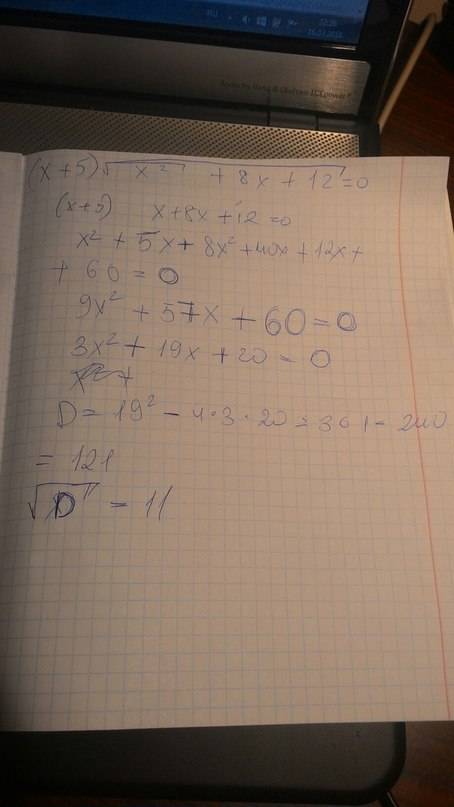 (x+5)√x² + 8x + 12 = 0
(x+5) x+8x+12=0
x² + 5x + 8x² + 40x + 12x +
+ 60 = 0
9x² + 57x + 60 = 0
3x² + 19x + 20 = 0
D = 19² - 4·3·20 = 361 - 240
= 121
√D = 11